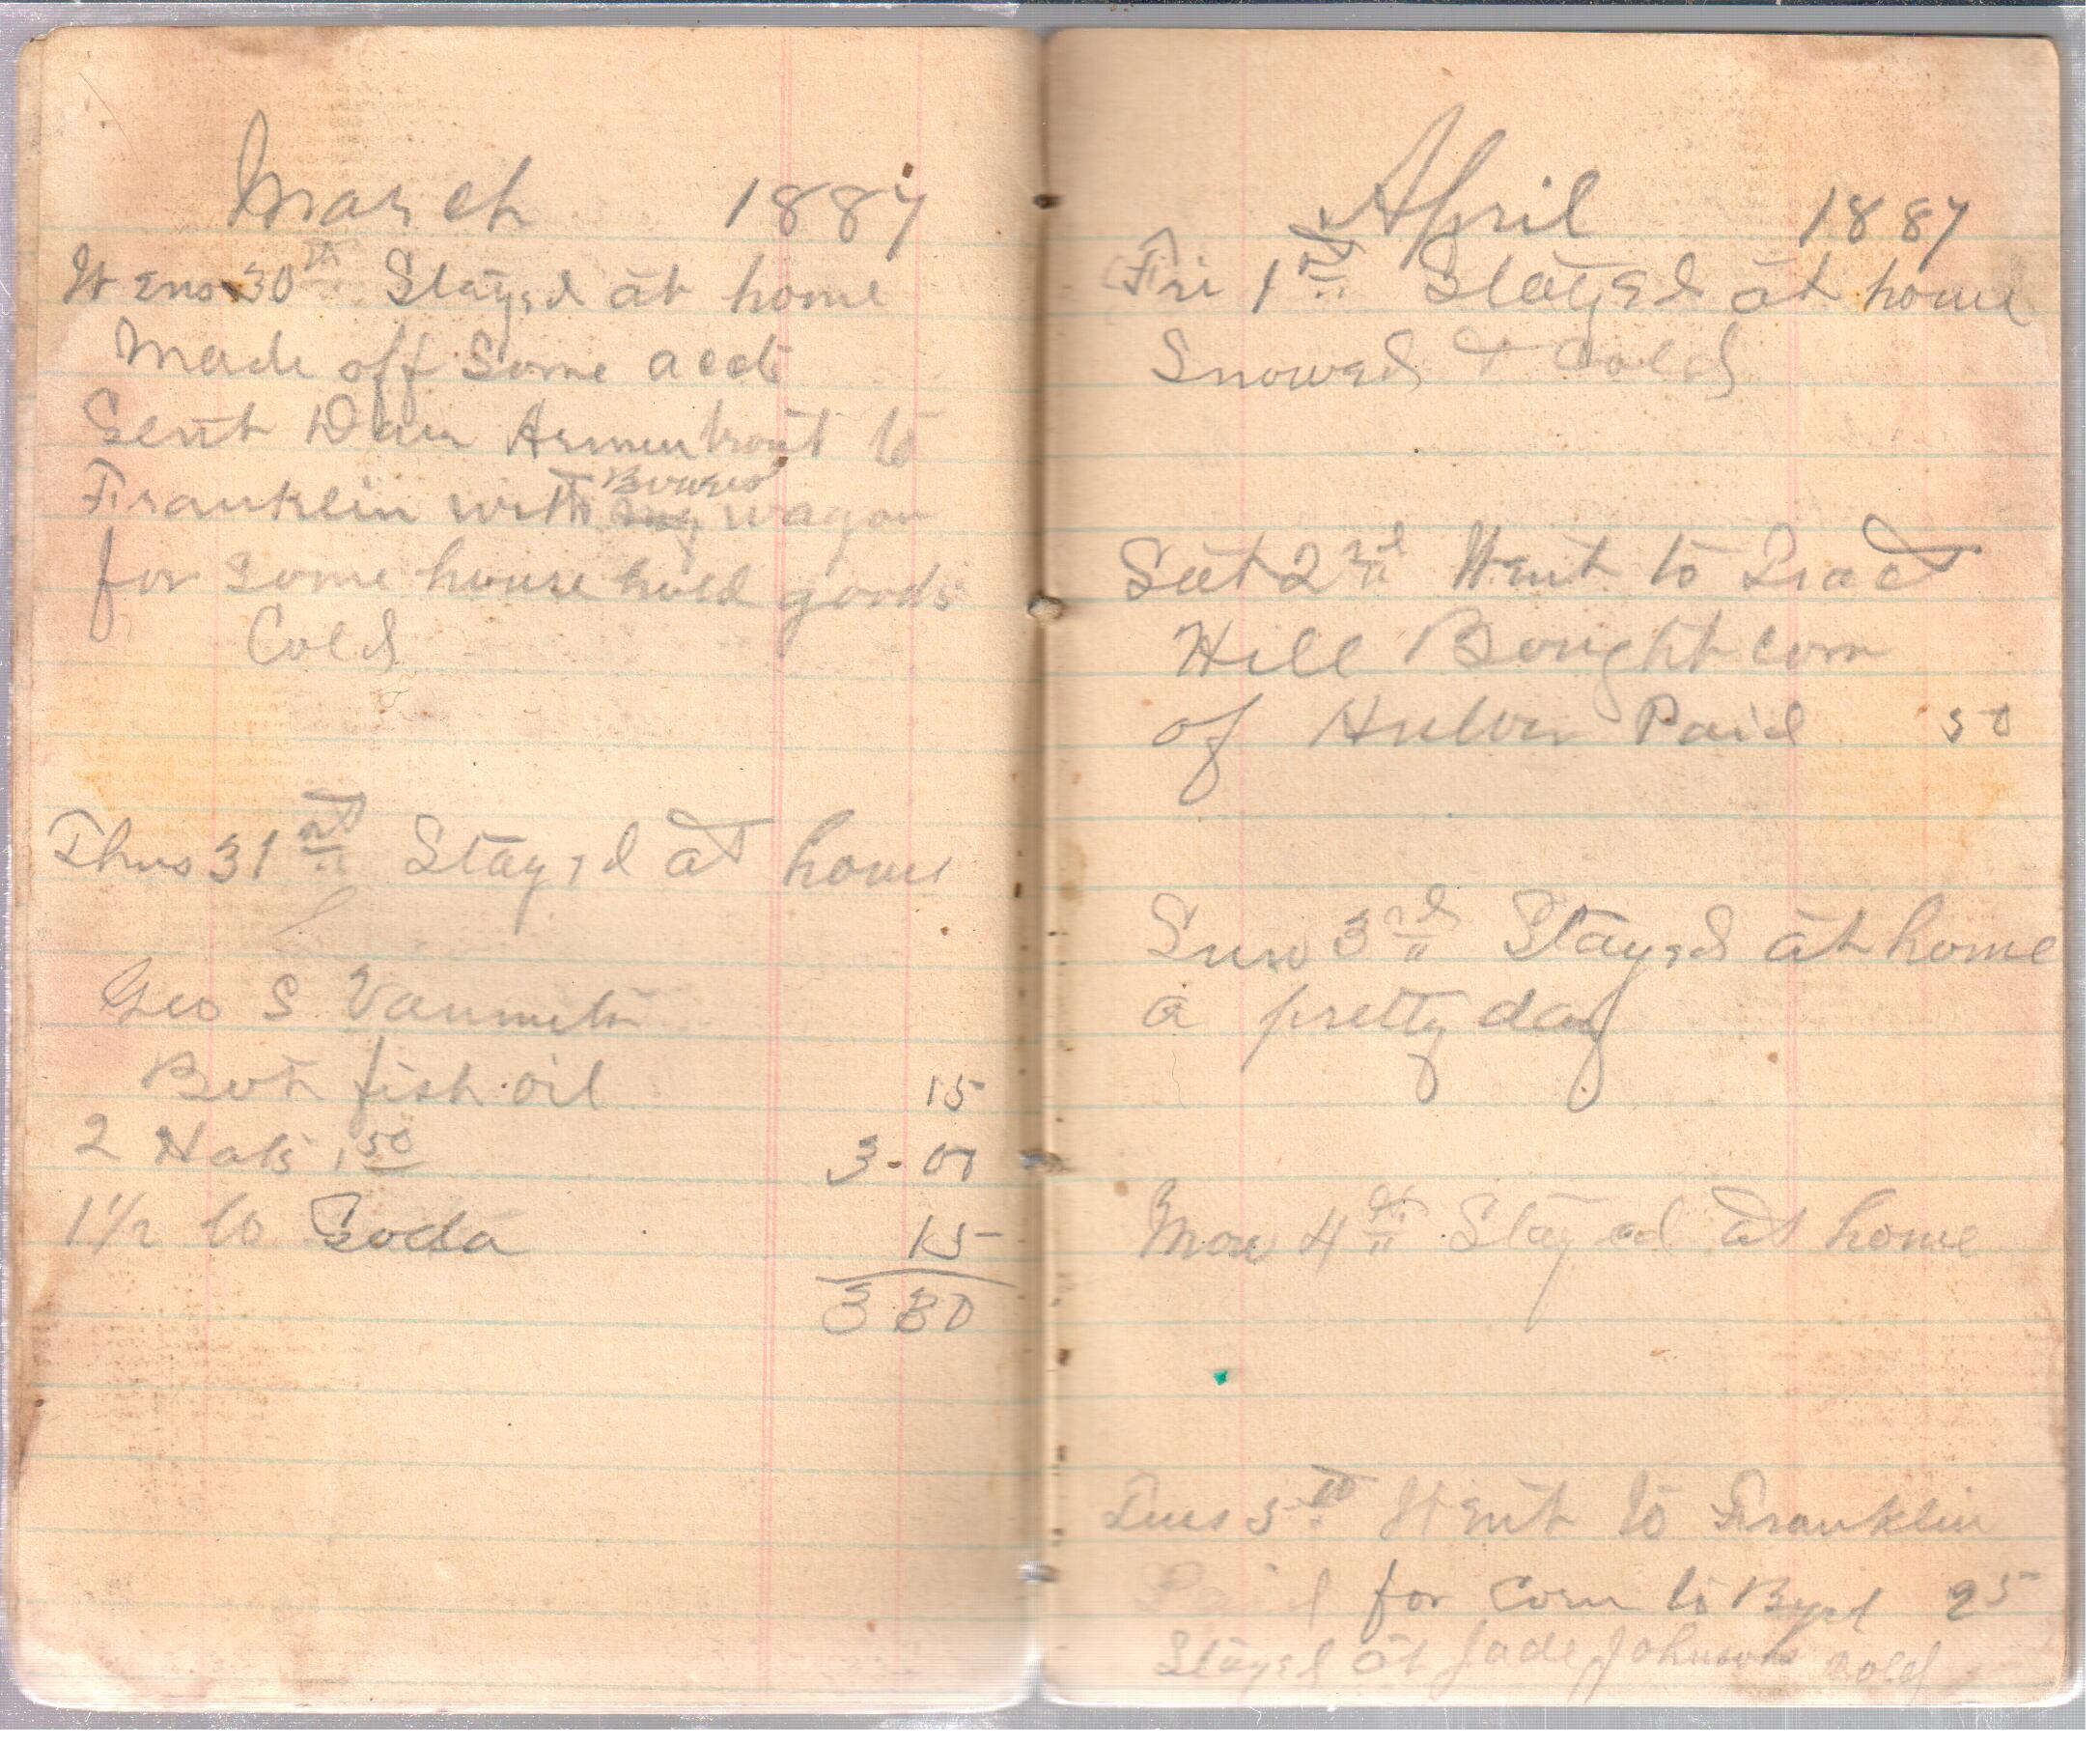 March 1887
Wens 30th Stayed at home
Made off Some acct
Sent Dan Armentrout to
Bowers
Franklin with my wagon
for some house hold goods
Cold
Thus 31st Stayed at home
Geo S Vanmeter
Bot fish oil 15
2 Hats 1 50 3-00
1 1/2 lb Soda 15
3 30
April 1887
Fri 1st Stayed at home
Snowed & Cold
Sat 2nd Went to
Hill Bought corn
of Hulver Paid 50
Sun 3rd Stayed at home
a pretty day
Mon 4th Stayed at home
Tues 5th Went to Franklin
Paid for Corn to Byrd 25
Stayed at Jade Johnsons cold